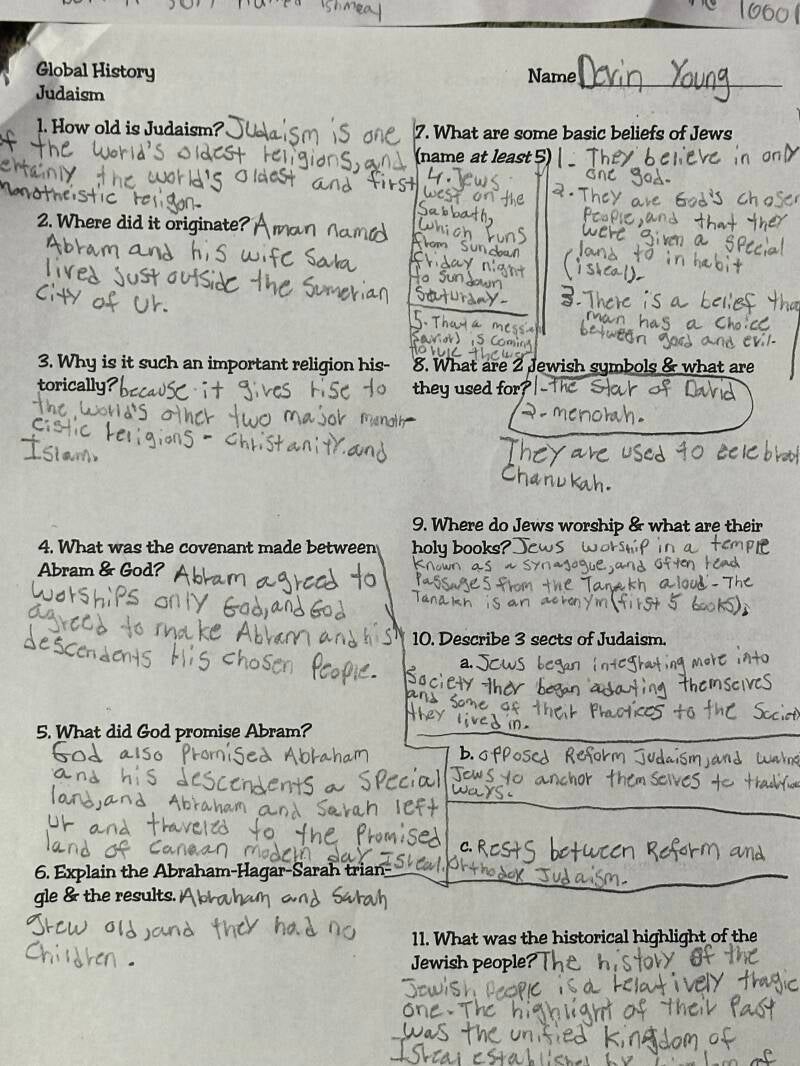 named Ishmeal
10001
Global History
Judaism
Name Devin Young
1. How old is Judaism? Judaism is one
of the world's oldest religions, and
certainly the world's oldest and first
monotheistic religon.
2. Where did it originate? A man named
Abram and his wife Sara
lived just outside the Sumerian
City of Ur.
3. Why is it such an important religion his-
torically? because it gives rise to
the world's other two major monoth-
eistic religions - Christanity and
Islam.
4. What was the covenant made between
Abram & God? Abram agreed to
worships only God, and God
agreed to make Abram and his
descendents His chosen People.
5. What did God promise Abram?
God also Promised Abraham
and his descendents a special
land, and Abraham and Sarah left
Ur and traveled to the Promised
land of Canaan modern day Isreal.
6. Explain the Abraham-Hagar-Sarah trian-
gle & the results. Abraham and Sarah
grew old, and they had no
Children.
7. What are some basic beliefs of Jews
(name at least 5) 1- They believe in only
one god.
2. They are God's chosen
People, and that they
were given a special
land to inhabit
(isreal).
3. There is a belief that
man has a choice
between good and evil.
4. Jews
west on the
Sabbath,
which runs
from sundown
Friday night
to sundown
Saturday-
5. That a
is coming
to rule the
8. What are 2 Jewish symbols & what are
they used for? 1-The Star of David
2- menorah.
They are used to celebrat
Chanukah.
9. Where do Jews worship & what are their
holy books? Jews worship in a temple
known as a synagogue, and often read
Passages from the Tanakh aloud - The
Tanakh is an acronym (first 5 books).
10. Describe 3 sects of Judaism.
a. Jews began integrating more into
Society ther began adating themselves
and some of their Practices to the Societ
they lived in.
b. opposed Reform Judaism, and
Jews to anchor themselves to
ways.
c. Rests between Reform and
Orthodox Judaism.
11. What was the historical highlight of the
Jewish people? The history of the
Jewish People is a relatively tragic
one. The highlight of their Past
was the unified kingdom of
Isreal established by kingdom of